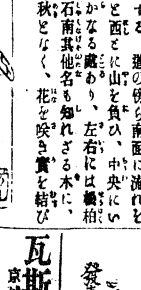 道の傍ら南面に流れを
と西とに山を負ひ、中央にい
かなる蔵あり、左右には榎柏
石南其他名も知れざる木に、
秋となく、花を咲き實を結び
瓦斯
京
發